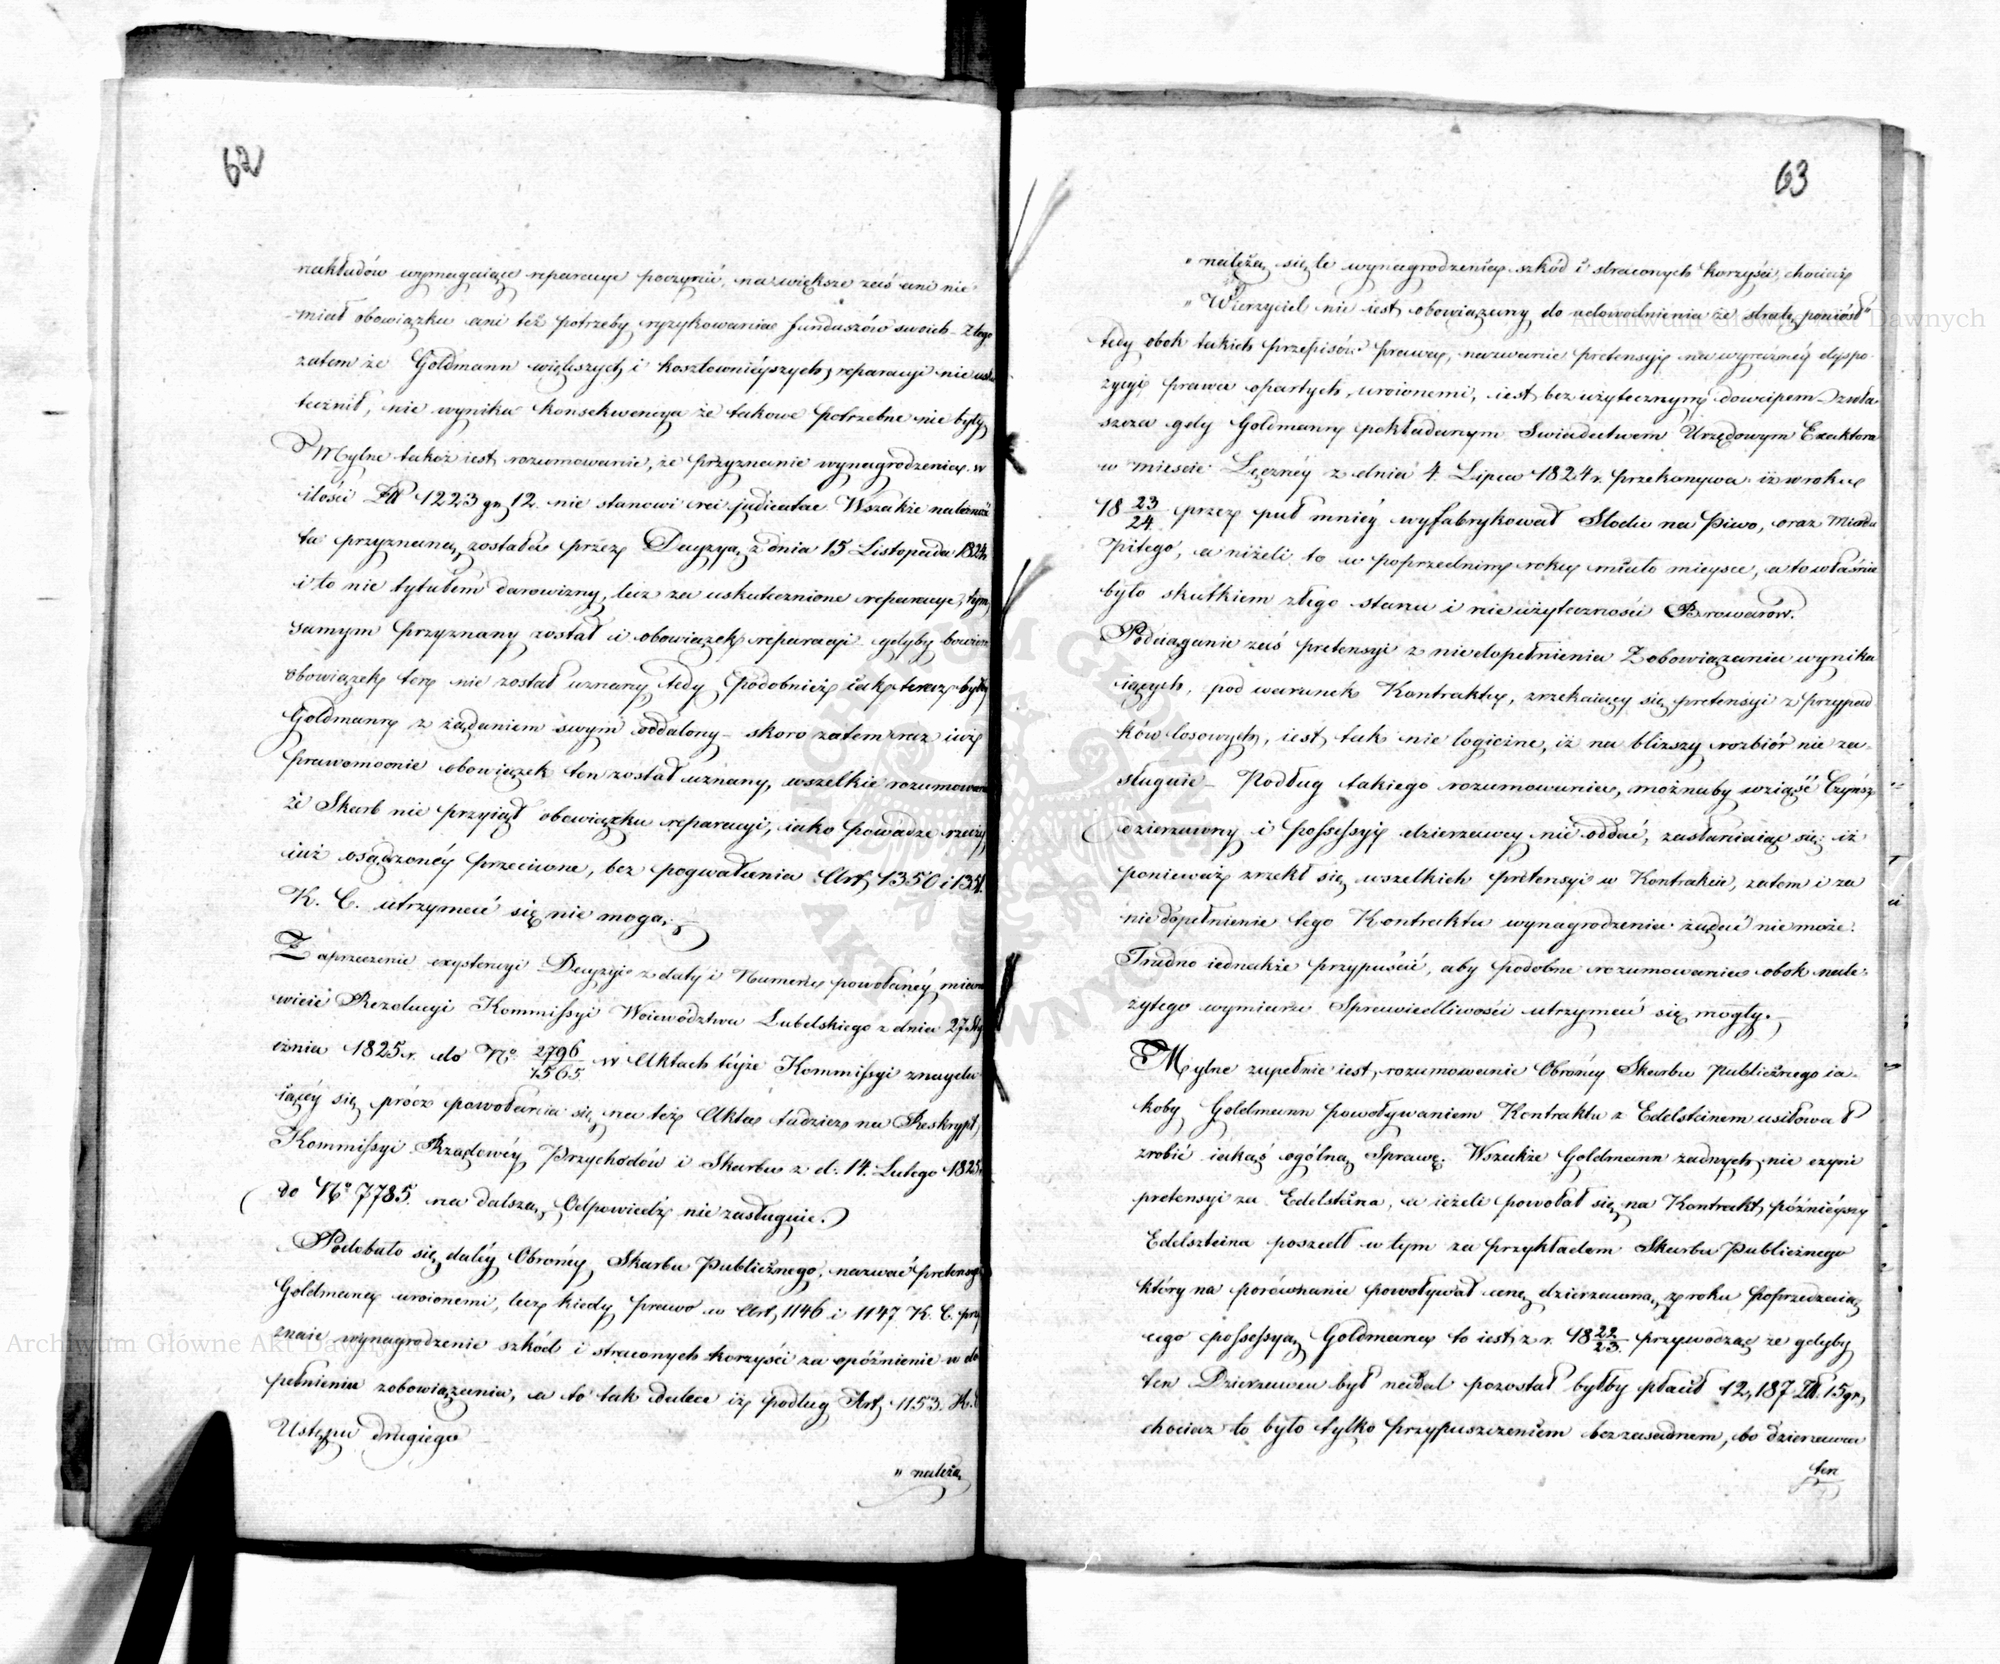 62
nakładów wymagaiące reparacye poczynić, na większe zaś ani nie
miał obowiązku ani też potrzeby ryzykowania funduszów swoich – Z tego
zatem że Goldmann większych i kosztownieyszych reparacyi nie usku
tecznił, nie wynika konsekwencya że takowe potrzebne nie były
Mylne takoż iest rozumowanie, że przyznanie wynagrodzenia w
ilości Złł 1223 gr 12 nie stanowi rei judicatae. Wszakże należność
ta przyznana została przez Decyzyą z dnia 15 Listopada 1824
i to nie tytułem darowizny, lecz za uskutecznione reparacye, tym
samym przyznany został i obowiązek reparacyi – gdyby bowiem
obowiązek ten nie został uznany, tedy podobnież iak teraz byłby
Goldmann z żądaniem swym oddalony – skoro zatem raz iuż
prawomocnie obowiązek ten został uznany, wszelkie rozumowania
że Skarb nie przyiął obowiązku reparacyi, iako powadze rzeczy
iuż osądzonéy przeciwne, bez pogwałcenia Art. 1350 i 1351.
K. C. utrzymać się nie mogą.
Zaprzeczenie exystencyi Decyzyi z daty i Numeru powołanéy miano
wicie Rezolucyi Kommissyi Woiewództwa Lubelskiego z dnia 27 Sty
cznia 1825 r. do Nº 2796/1565 w Aktach téyże Kommissyi znaydu
iącéy się prócz powołania się na też Akta tudzież na Reskrypt
Kommissyi Rządowéy Przychodów i Skarbu z d. 14. Lutego 1825
do Nº 7785. na dalszą Odpowiedź nie zasługuie.
Podobało się daléy Obrońcy Skarbu Publicznego, nazwać pretensye
Goldmana uroionemi, lecz kiedy prawo w Art. 1146 i 1147 K. C. przy
znaie wynagrodzenie szkód i straconych korzyści za opóźnienie w do
pełnieniu zobowiązania, a to tak daléce iż podług Art. 1153. K. C
Ustępu drugiego
„ należą
63
„ należą się te wynagrodzenia szkód i straconych korzyści, chociaż
„ Wierzyciel nie iest obowiązany do udowodnienia że stratę poniósł"
tedy obok takich przepisów prawa, nazwanie pretensyi na wyraźnéy dyspo
zycyi prawa opartych, uroionemi, iest bez użytecznym dowcipem – zwła
szcza gdy Goldmann pokładanym Swiadectwem Urzędowym Exaktora
w mieście Łęczney z dnia 4. Lipca 1824 r. przekonywa iż w roku
18 23/24 przez puł mniéy wyfabrykował Słodu na Piwo, oraz Miodu
Pitego, a niżeli to w poprzednim roku miało mieysce, a to właśnie
było skutkiem złego stanu i nieużyteczności Browarów.
Podciąganie zaś pretensyi z niedopełnienia Zobowiązania wynika
iących, pod warunek Kontraktu, zrzekaiący się pretensyi z przypad
ków losowych, iest tak nie logiczne, iż na bliższy rozbiór nie za
sługuie – Podług takiego rozumowania, możnaby wziąść Czynsz
dzierzawny i possessyi dzierzawcy nie oddać, zasłaniaiąc się iż
ponieważ zrzekł się wszelkich pretensyi w Kontrakcie, zatem i za
niedopełnienie tego Kontraktu wynagrodzenia żądać nie może.
Trudno iednakże przypuścić, aby podobne rozumowania obok nale
żytego wymiaru Sprawiedliwości utrzymać się mogły.
Mylne zupełnie iest rozumowanie Obrońcy Skarbu Publicznego ia
koby Goldmann powoływaniem Kontraktu z Edelsteinem usiłował
zrobić iakąś ogólną Sprawę. Wszakże Goldmann żadnych nie czyni
pretensyi za Edelsteina, a ieżeli powołał się na Kontrakt późnieyszy
Edelszteina poszedł w tym za przykładem Skarbu Publicznego
który na porównanie powoływał cenę dzierzawną z roku poprzedzaią
cego possessyą Goldmana to iest z r. 18 22/23. przywodząc że gdyby
ten Dzierzawca był nadal pozostał byłby płacił 12,187 Złł. 15 gr,
chociaż to było tylko przypuszczeniem bezzasadnem, bo dzierzawca
ten
Archiwum Główne Akt Dawnych
Archiwum Główne Akt Dawnych